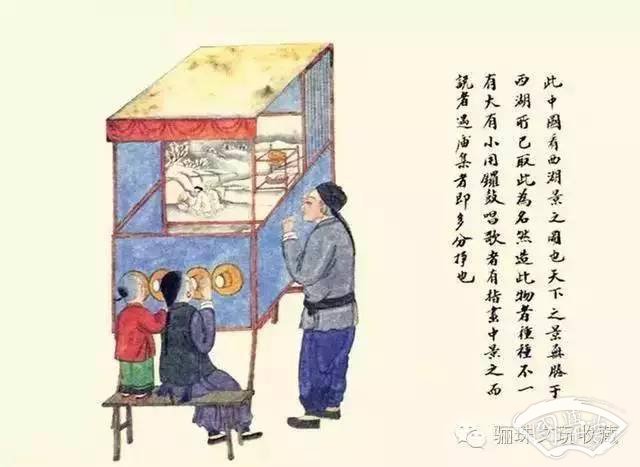 此中國看西湖景之圖也天下之景無勝于
西湖所已取此為名然造此物者種種不一
有大有小用鑼鼓唱歌者有指畫中景之而
説者遇庙集者即多分掙也
骊珠文玩收藏